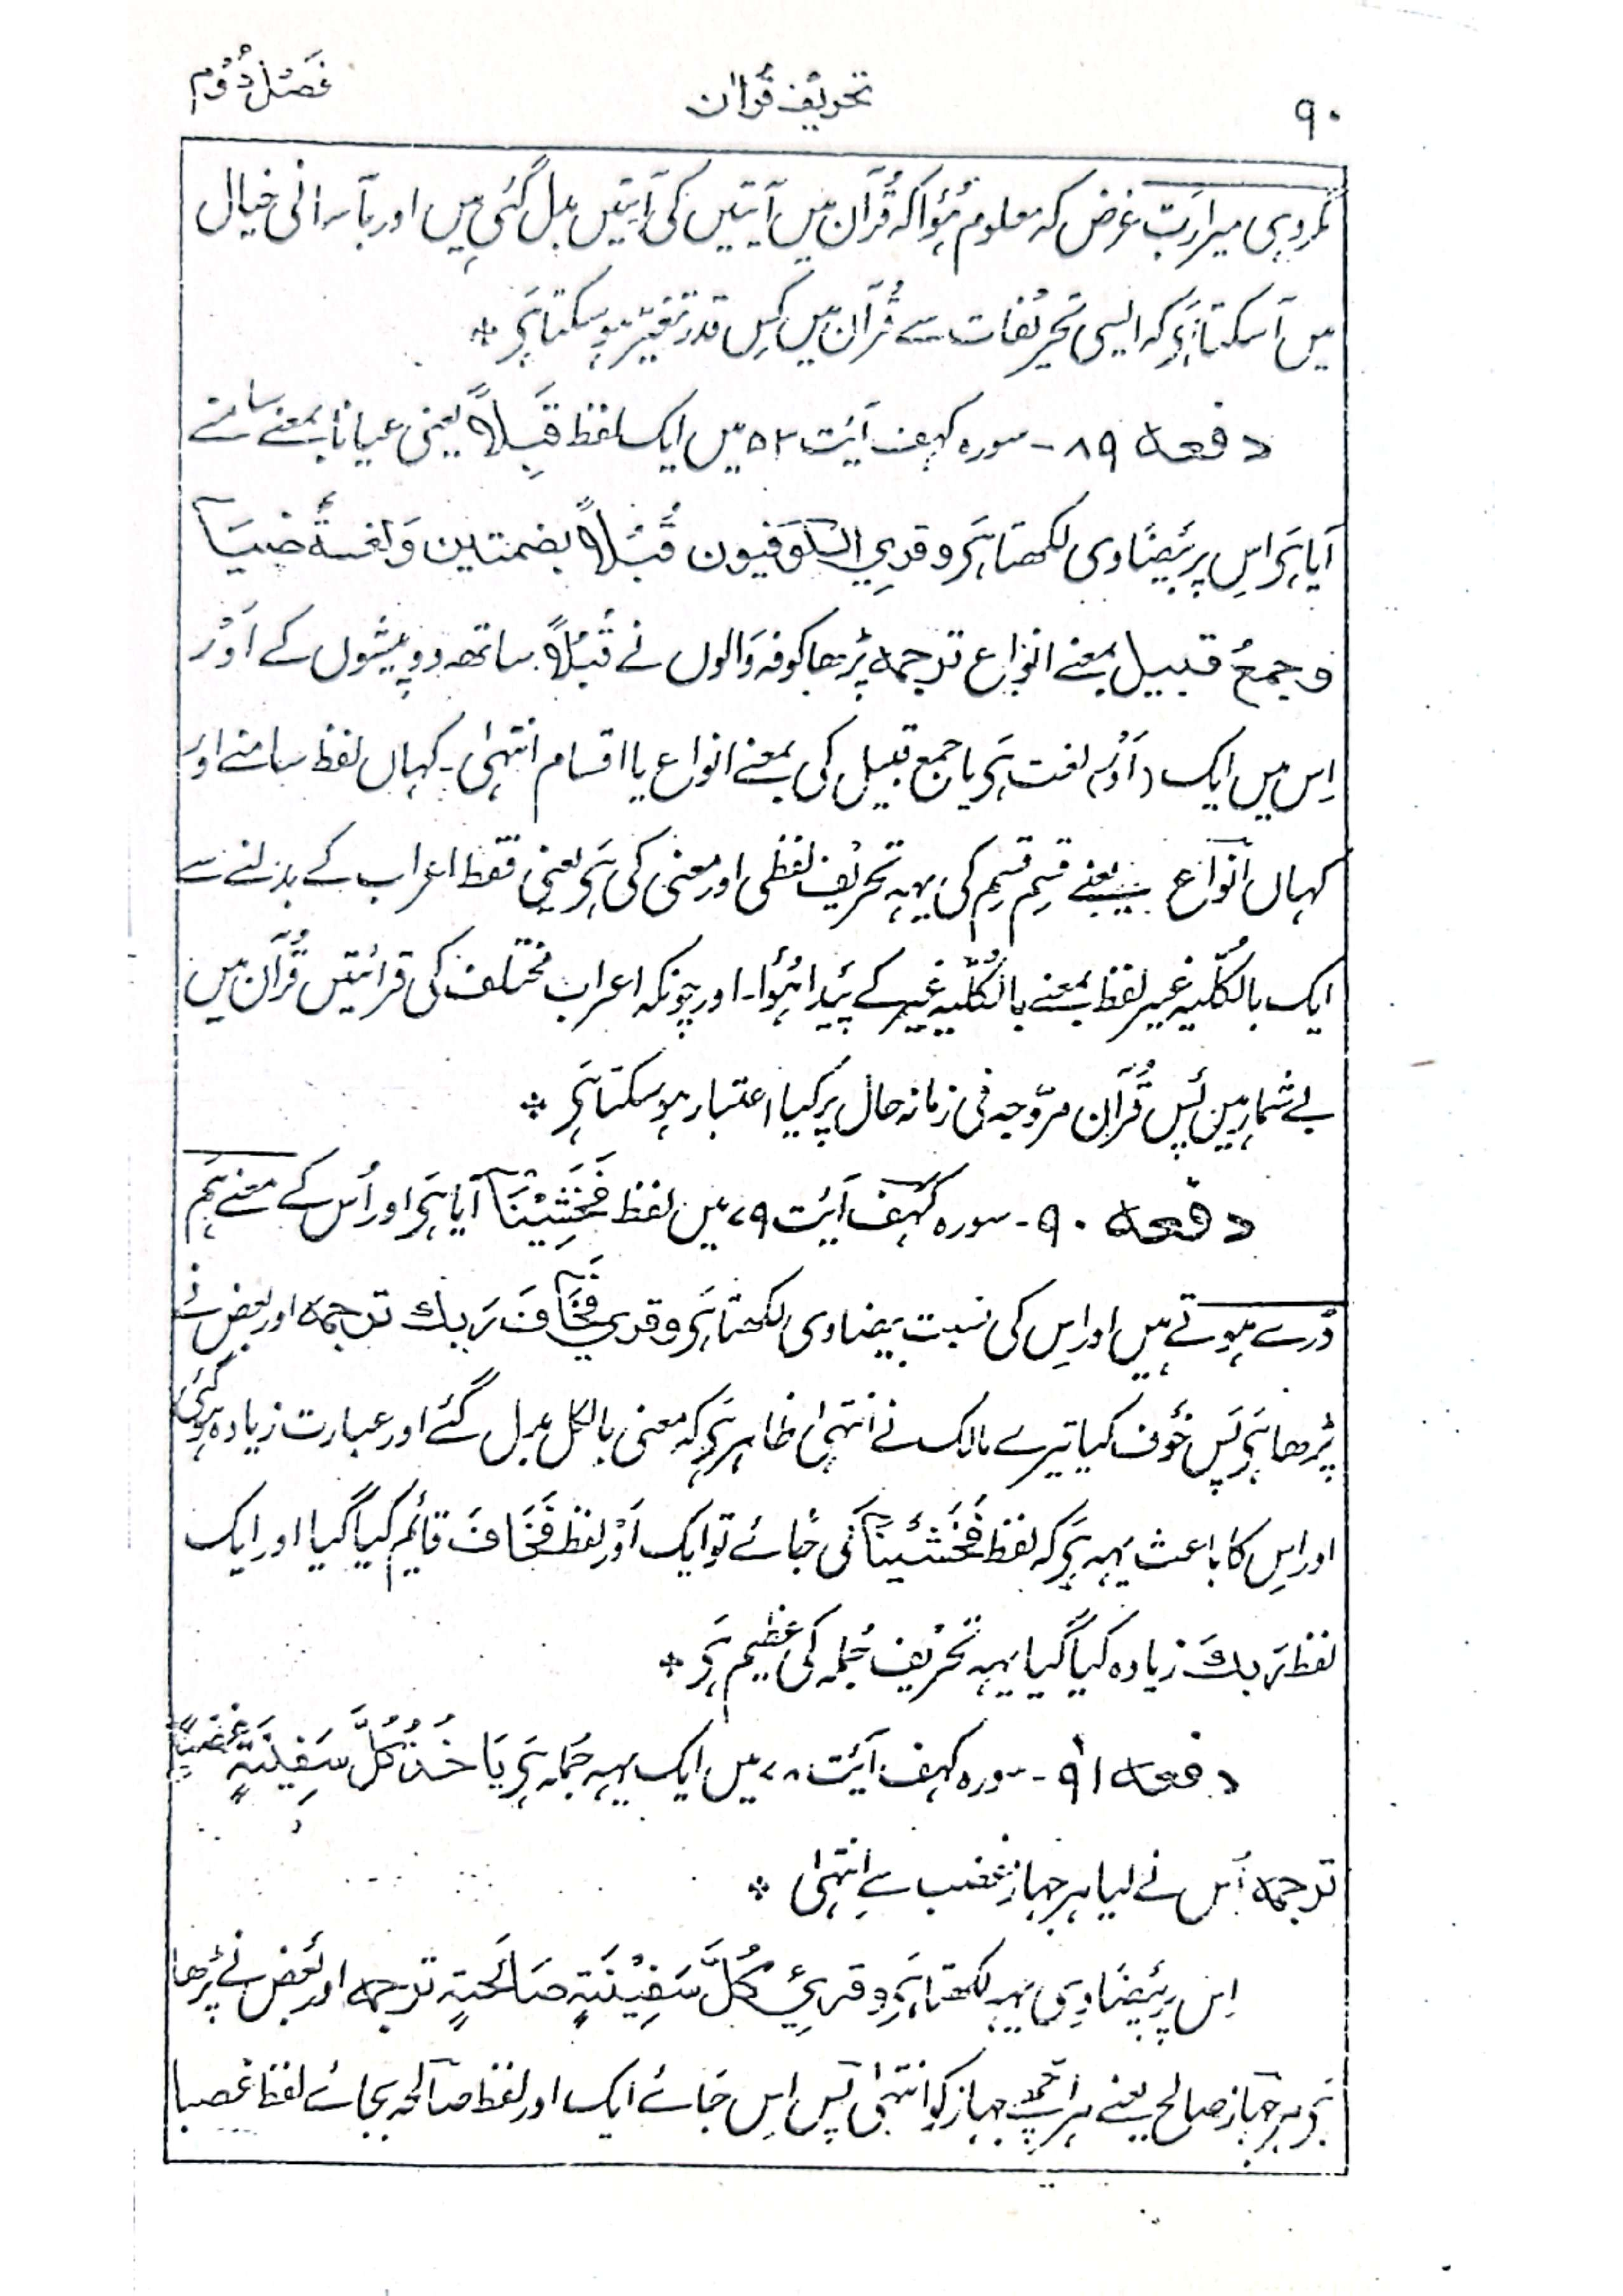 ۹۰ تحریف قرآن فصل دُوُم
مگر وہی میرا ربّ غرض کہ معلوم ہُؤا کہ قُرآن میں آیتیں کی آیتیں بدل گئی ہیں اور بآسانی خیال
میں آ سکتا ہَی کہ ایسی تحریفات سے قُرآن میں کِس قدر تغیّر ہو سکتا ہَی ٭
دفعہ ۸۹ - سورہ کہف آیت ۵۳ میں ایک لفظ قِبَلاً یعنی عیاناً بمعنے سامنے
آیا ہَی اِس پر بیضاوی لکھتا ہَی وقری الکوفیون قُبُلاً بضمتین ولغسةً ضیسًا
وجمعُ قبیل بمعنے انواع ترجمہ پڑھا کوفہ والوں نے قُبُلاً ساتھ دو پیشوں کے اَوْر
اِس میں ایک (اَوْر) لغت ہَی یا جمع قبیل کی بمعنے انواع یا اقسام انتہٰی - کہاں لفظ سامنے اور
کہاں انواع یعنے قِسم قِسم کی یہہ تحریف لفظی اور معنی کی ہَی یعنی فقط اعراب کے بدلنے سے
ایک بالکُلّیہ غیر لفظ بمعنے بالکُلّیہ غیر کے پَیدا ہُؤا - اور چونکہ اعراب مختلف کی قرائتیں قُرآن میں
بے شمار ہیں پَس قُرآن مروّجہ فی زمانہ حال پر کیا اعتبار ہو سکتا ہَی ٭
دفعہ ۹۰ - سورہ کہف آیت ۷۹ میں لفظ فَخَشِیْنَا آیا ہَی اور اُس کے معنے ہَم
ڈرے ہوتے ہیں اور اِس کی نسبت بیضاوی لکھتا ہَی وقری فَخَافَ رَبک ترجمہ اور بعض نے
پڑھا ہَی پَس خَوف کیا تیرے مالک نے انتہٰی ظاہر ہَی کہ معنی بالکل بدل گئے اور عبارت زیادہ ہو گئی
اور اِس کا باعث یہہ ہَی کہ لفظ فَخَشِیْنَا کی جائے تو ایک اَوْر لفظ فَخَافَ قائم کیا گیا اور ایک
لفظ رَبک زیادہ کیا گیا یہہ تحریف جُملہ کی عظیم ہَی ٭
دفعہ ۹۱ - سورہ کہف آیت ۷۸ میں ایک یہہ جُملہ ہَی یَاخُذُ کُلَّ سَفِینَةٍ غَصْبًا
ترجمہ اُس نے لیا ہر جہاز غضب سے انتہٰی ٭
اِس پر بیضاوی یہہ لکھتا ہَی وقریَٔ کُلَّ سَفِیْنَةٍ صَالِحَةٍ ترجمہ اور بعض نے پڑھا
ہَی ہر جہاز صالح یعنے ہر اچھے جہاز کو انتہٰی پَس اِس جائے ایک اور لفظ صَالحہ بجائے لفظ غصبا